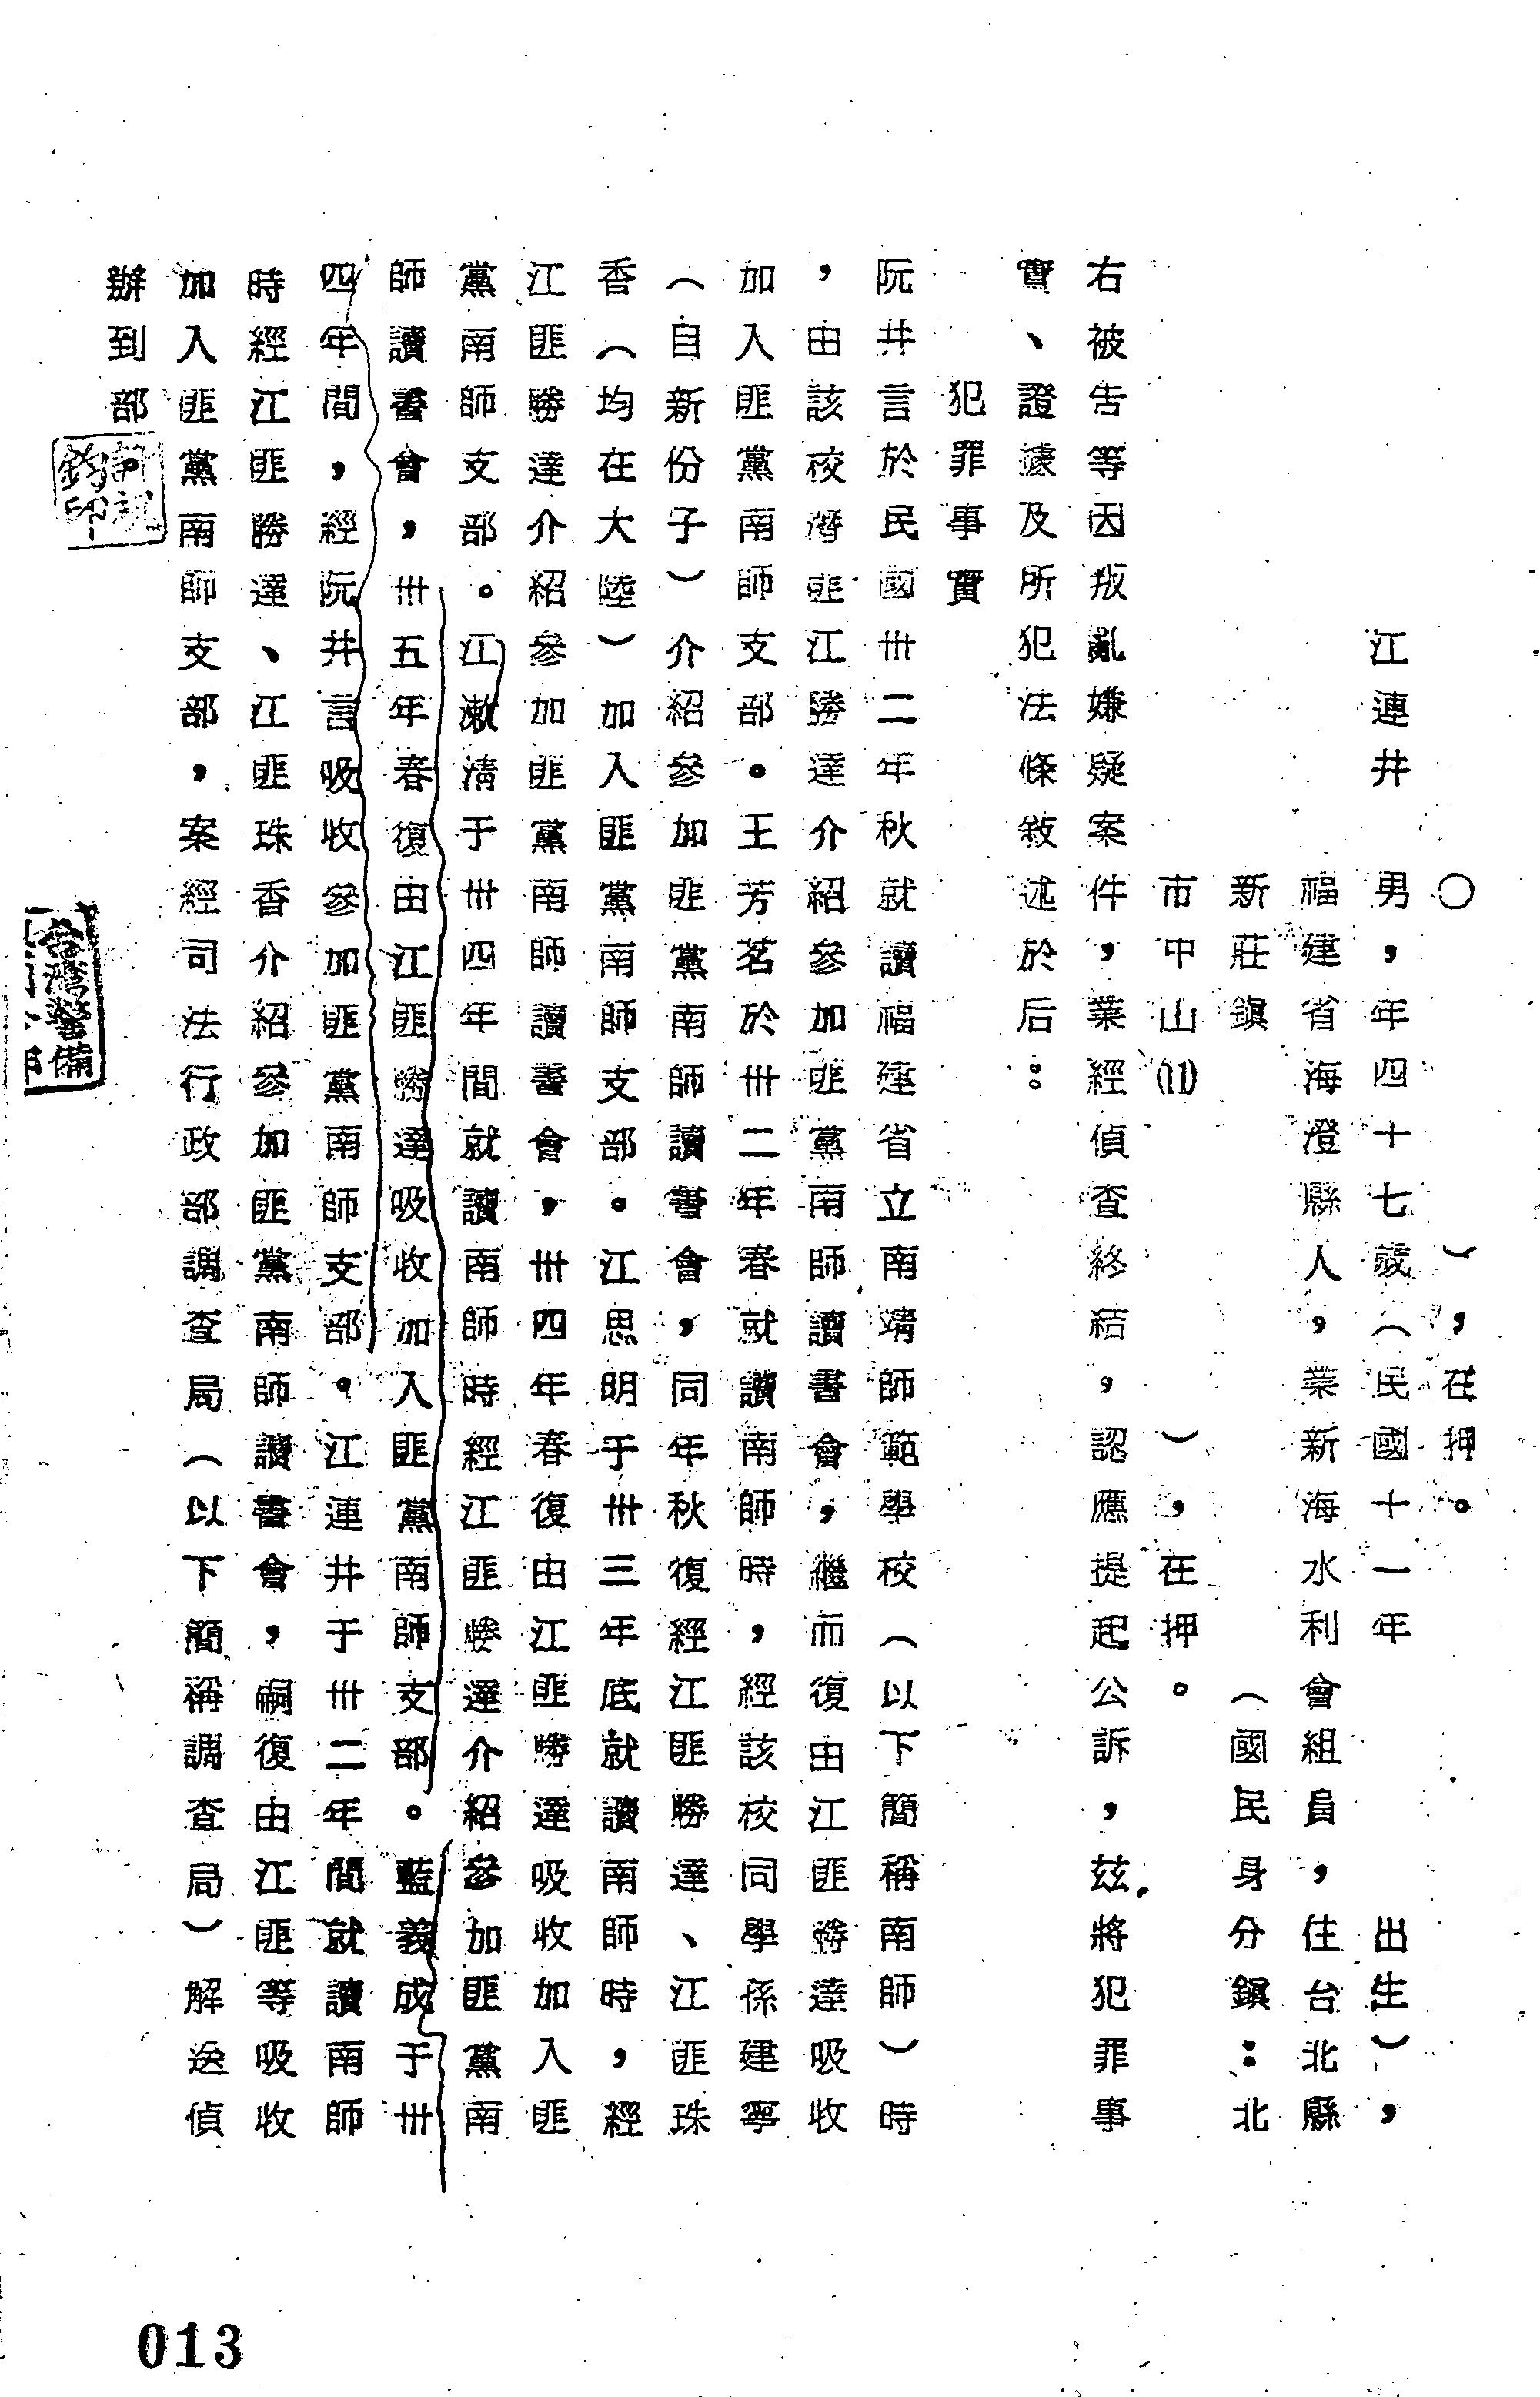 ○　　　　　），在押。
江連井　男，年四十七歲（民國十一年　　　出生），
福建省海澄縣人，業新海水利會組員，住台北縣
新莊鎮　　　　　　　（國民身分鎮：北
市中山(11)　　　　　），在押。
右被告等因叛亂嫌疑案件，業經偵查終結，認應提起公訴，玆將犯罪事
實、證據及所犯法條敘述於后：
犯罪事實
阮井言於民國卅二年秋就讀福建省立南靖師範學校（以下簡稱南師）時
，由該校潛匪江勝達介紹參加匪黨南師讀書會，繼而復由江匪勝達吸收
加入匪黨南師支部。王芳茗於卅二年春就讀南師時，經該校同學係建寧
（自新份子）介紹參加匪黨南師讀書會，同年秋復經江匪勝達、江匪珠
香（均在大陸）加入匪黨南師支部。江思明于卅三年底就讀南師時，經
江匪勝達介紹參加匪黨南師讀書會，卅四年春復由江匪勝達吸收加入匪
黨南師支部。江漱清于卅四年間就讀南師時經江匪勝達介紹參加匪黨南
師讀書會，卅五年春復由江匪勝達吸收加入匪黨南師支部。藍義成于卅
四年間，經阮井言吸收參加匪黨南師支部。江連井于卅二年間就讀南師
時經江匪勝達、江匪珠香介紹參加匪黨南師讀書會，嗣復由江匪等吸收
加入匪黨南師支部，案經司法行政部調查局（以下簡稱調查局）解送偵
辦到部。
鈞印
台灣警備
013